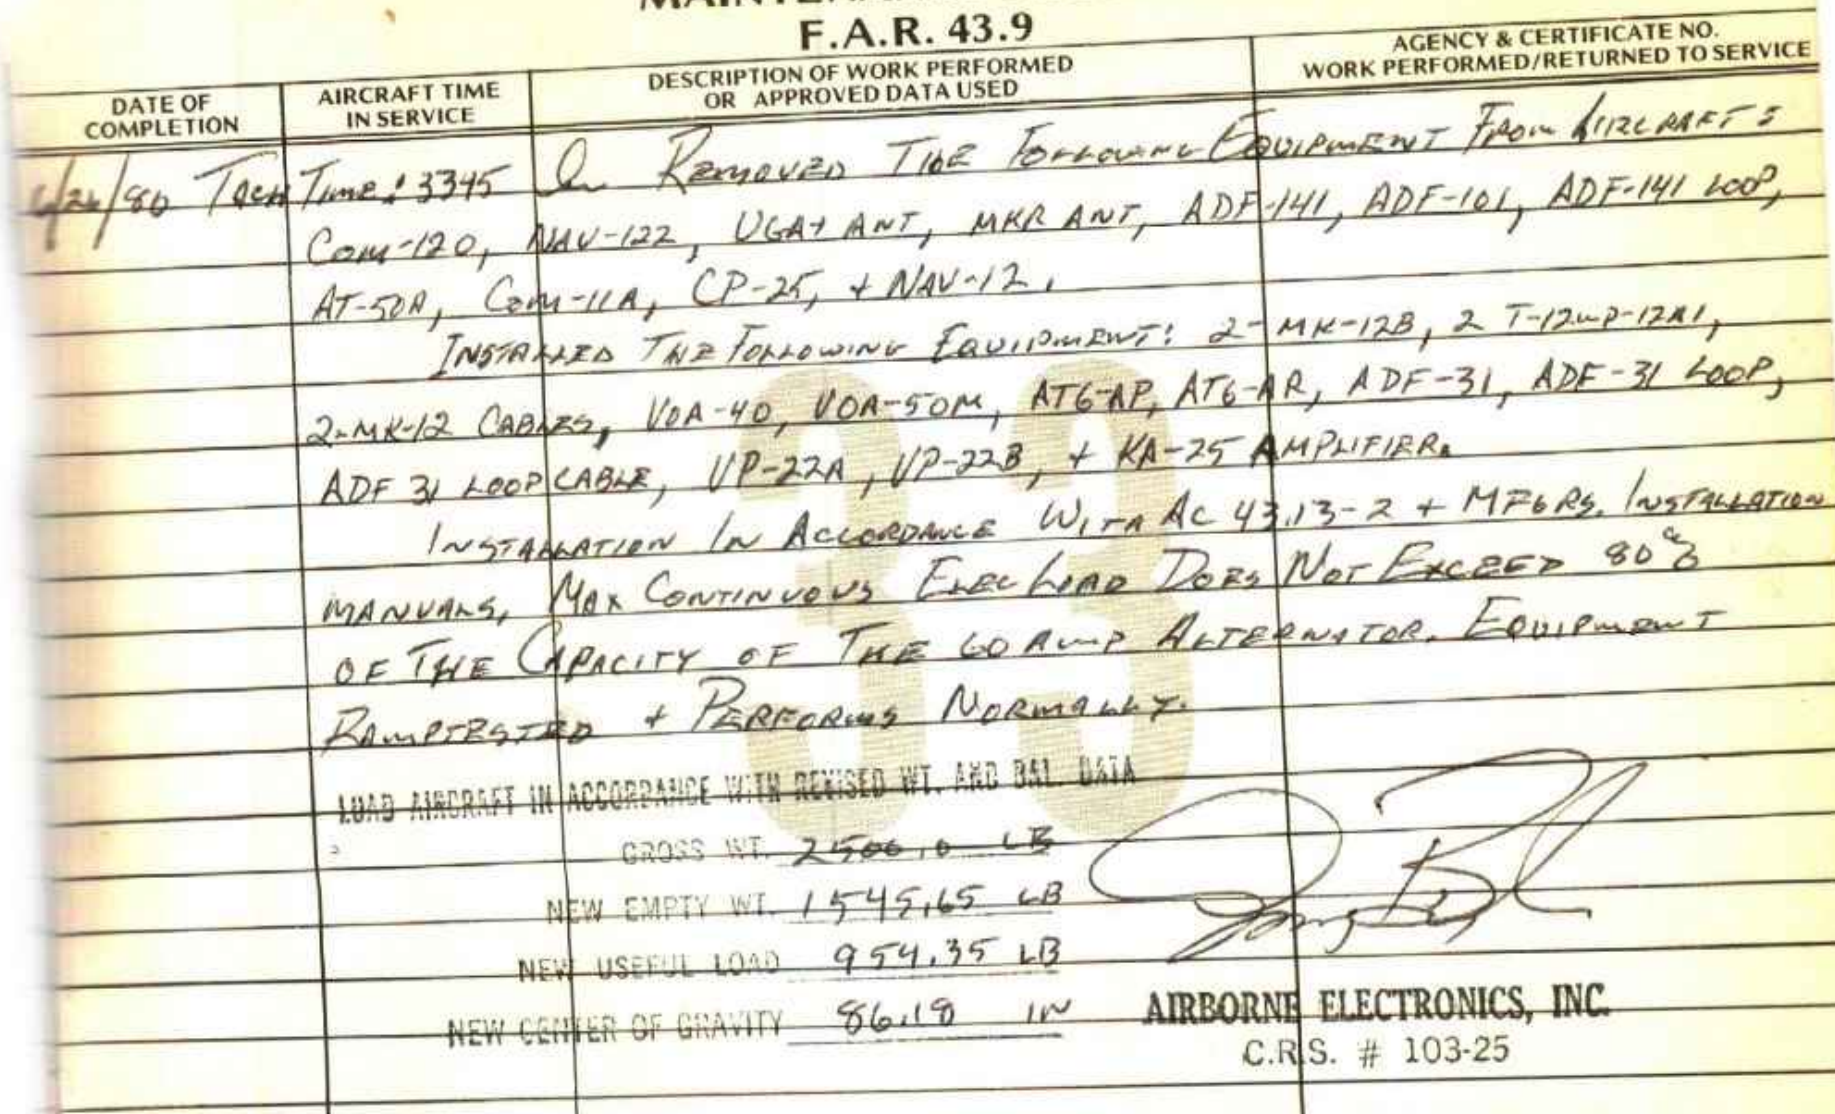 F.A.R. 43.9
DATE OF COMPLETION
AIRCRAFT TIME IN SERVICE
DESCRIPTION OF WORK PERFORMED OR APPROVED DATA USED
AGENCY & CERTIFICATE NO. WORK PERFORMED/RETURNED TO SERVICE
/80 TACH TIME: 3345 REMOVED THE FOLLOWING EQUIPMENT FROM AIRCRAFT:
COM-120, NAV-122, ANT, MKR ANT, ADF-141, ADF-101, ADF-141 LOOP,
AT-50A, COM-11A, CP-25, + NAV-12.
INSTALLED THE FOLLOWING EQUIPMENT: 2-MK-12B, 2
2-MK-12 CABLES, VOA-40, VOA-50M, AT6-AP, AT6-AR, ADF-31, ADF-31 LOOP,
ADF 31 LOOP CABLE, VP-22A, VP-22B, + KA-25 AMPLIFIER.
INSTALLATION IN ACCORDANCE WITH AC 43.13-2 + MFGRS. INSTALLATION
MANUALS, MAX CONTINUOUS ELEC LOAD DOES NOT EXCEED 80%
OF THE CAPACITY OF THE 60 AMP ALTERNATOR. EQUIPMENT
RAMPTESTED + PERFORMS NORMALLY.
LOAD AIRCRAFT IN ACCORDANCE WITH REVISED WT. AND BAL. DATA
GROSS WT. 2500.0 LB
NEW EMPTY WT. 1545.65 LB
NEW USEFUL LOAD 954.35 LB
NEW CENTER OF GRAVITY 86.18 IN
AIRBORNE ELECTRONICS, INC.
C.R.S. # 103-25
33